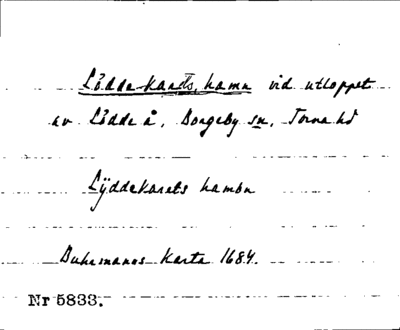 Lödde-Karets hamn vid utloppet
av Lödde å, Borgeby sn, Torna hd
Lÿddekarets hambn
Buhrmanns Karta 1684.
Nr 5833.